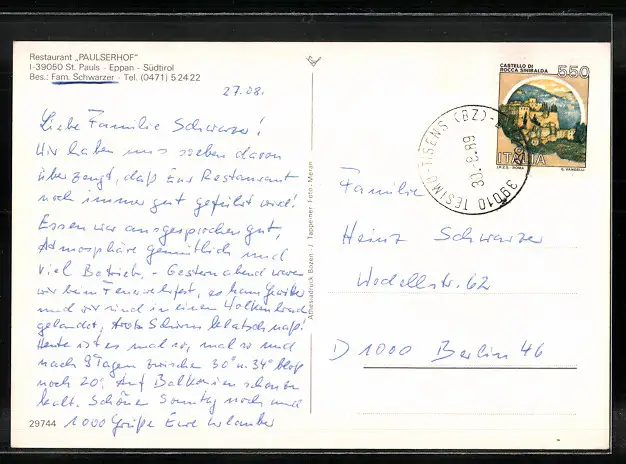 Restaurant „PAULSERHOF"
I-39050 St. Pauls - Eppan - Südtirol
Bes.: Fam. Schwarzer - Tel. (0471) 5 24 22
27.08.
Liebe Familie Schwarzer!
Wir haben uns soeben davon
überzeugt, daß Eur Restaurant
noch immer gut geführt wird!
Essen war ausgesprochen gut,
Atmosphäre gemütlich und
viel Betrieb. - Gestern abend waren
wir beim Feuerwehrfest, es kam Gewitter
und wir sind in einen Wolkenbruch
gelandet, trotz Schirm klatschnaß!
Heute ist es mal so, mal so und
nach 9 Tagen zwischen 30° u. 34° bloß
noch 20°. Auf Balkonien schon
kalt. Schönen Sonntag noch und
1000 Grüße Eure Urlauber
29744
Athesiadruck Bozen - J. Tappeiner Foto - Meran
CASTELLO DI
ROCCA SINIBALDA
550
ITALIA
I.P.Z.S. - ROMA
39010 TESIMO-TISENS (BZ)
30.8.89
Familie
Heinz Schwarzer
Wedellstr. 62
D 1000 Berlin 46